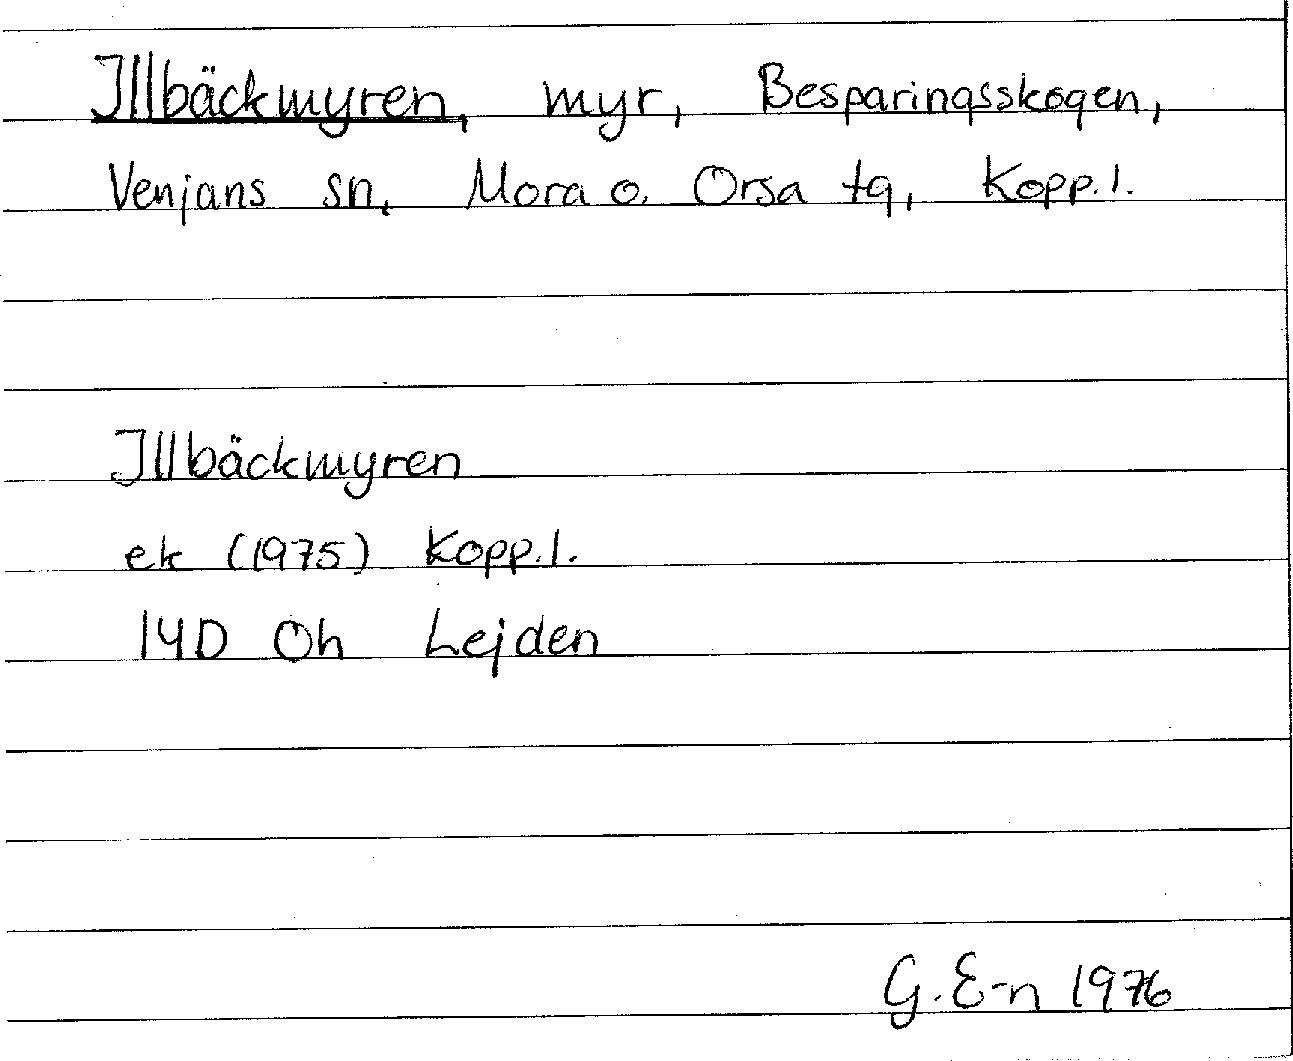 Illbäckmyren, myr, Besparingsskogen,
Venjans sn, Mora o. Orsa tg, Kopp.l.
Illbäckmyren
ek (1975) Kopp.l.
14D Oh Lejden
G. E-n 1976